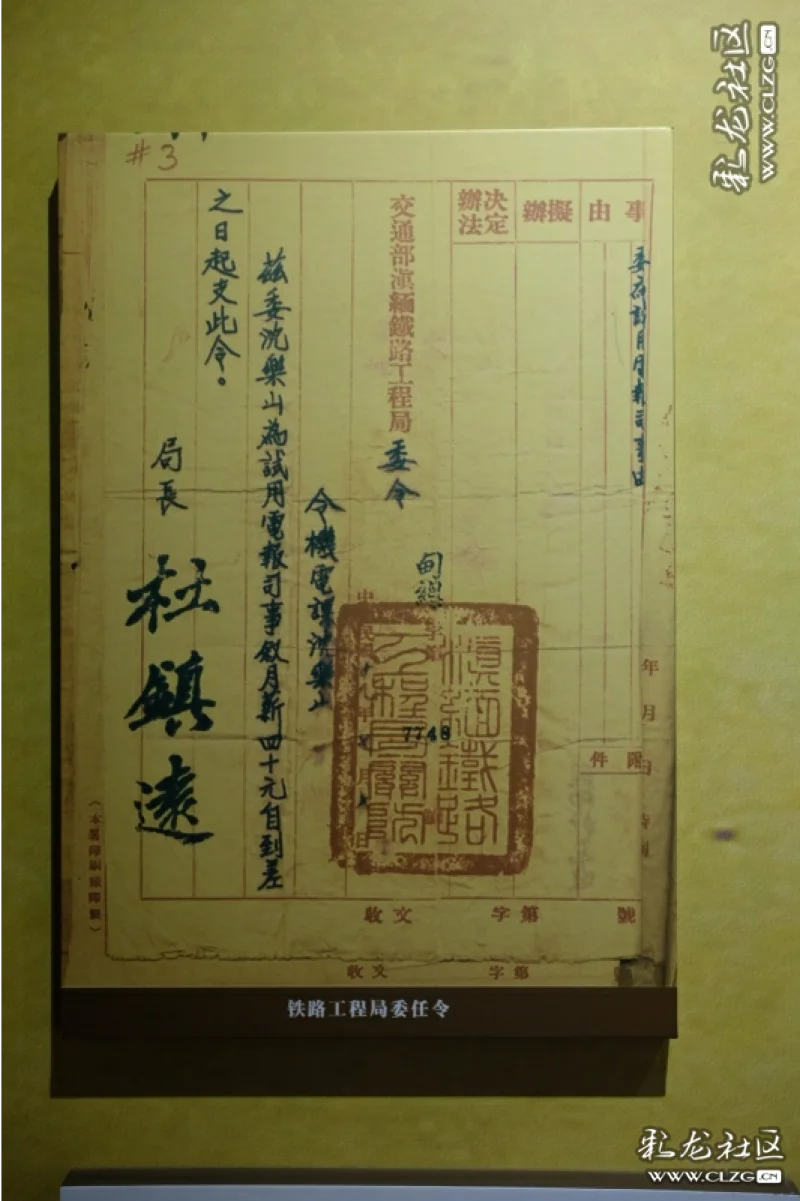 彩龙社区.CN
www.CLZG.CN
#3
事由
擬辦
决定辦法
交通部滇緬鐵路工程局
委令
甸總
7748
令機電課沈樂山
茲委沈樂山為試用電報司事敘月薪四十元自到差
之日起支此令。
局長
杜鎮遠
滇緬鐵路
工程局關防
年月日
附件
收文
字第
號
收文
字第
铁路工程局委任令
彩龙社区
www.CLZG.CN